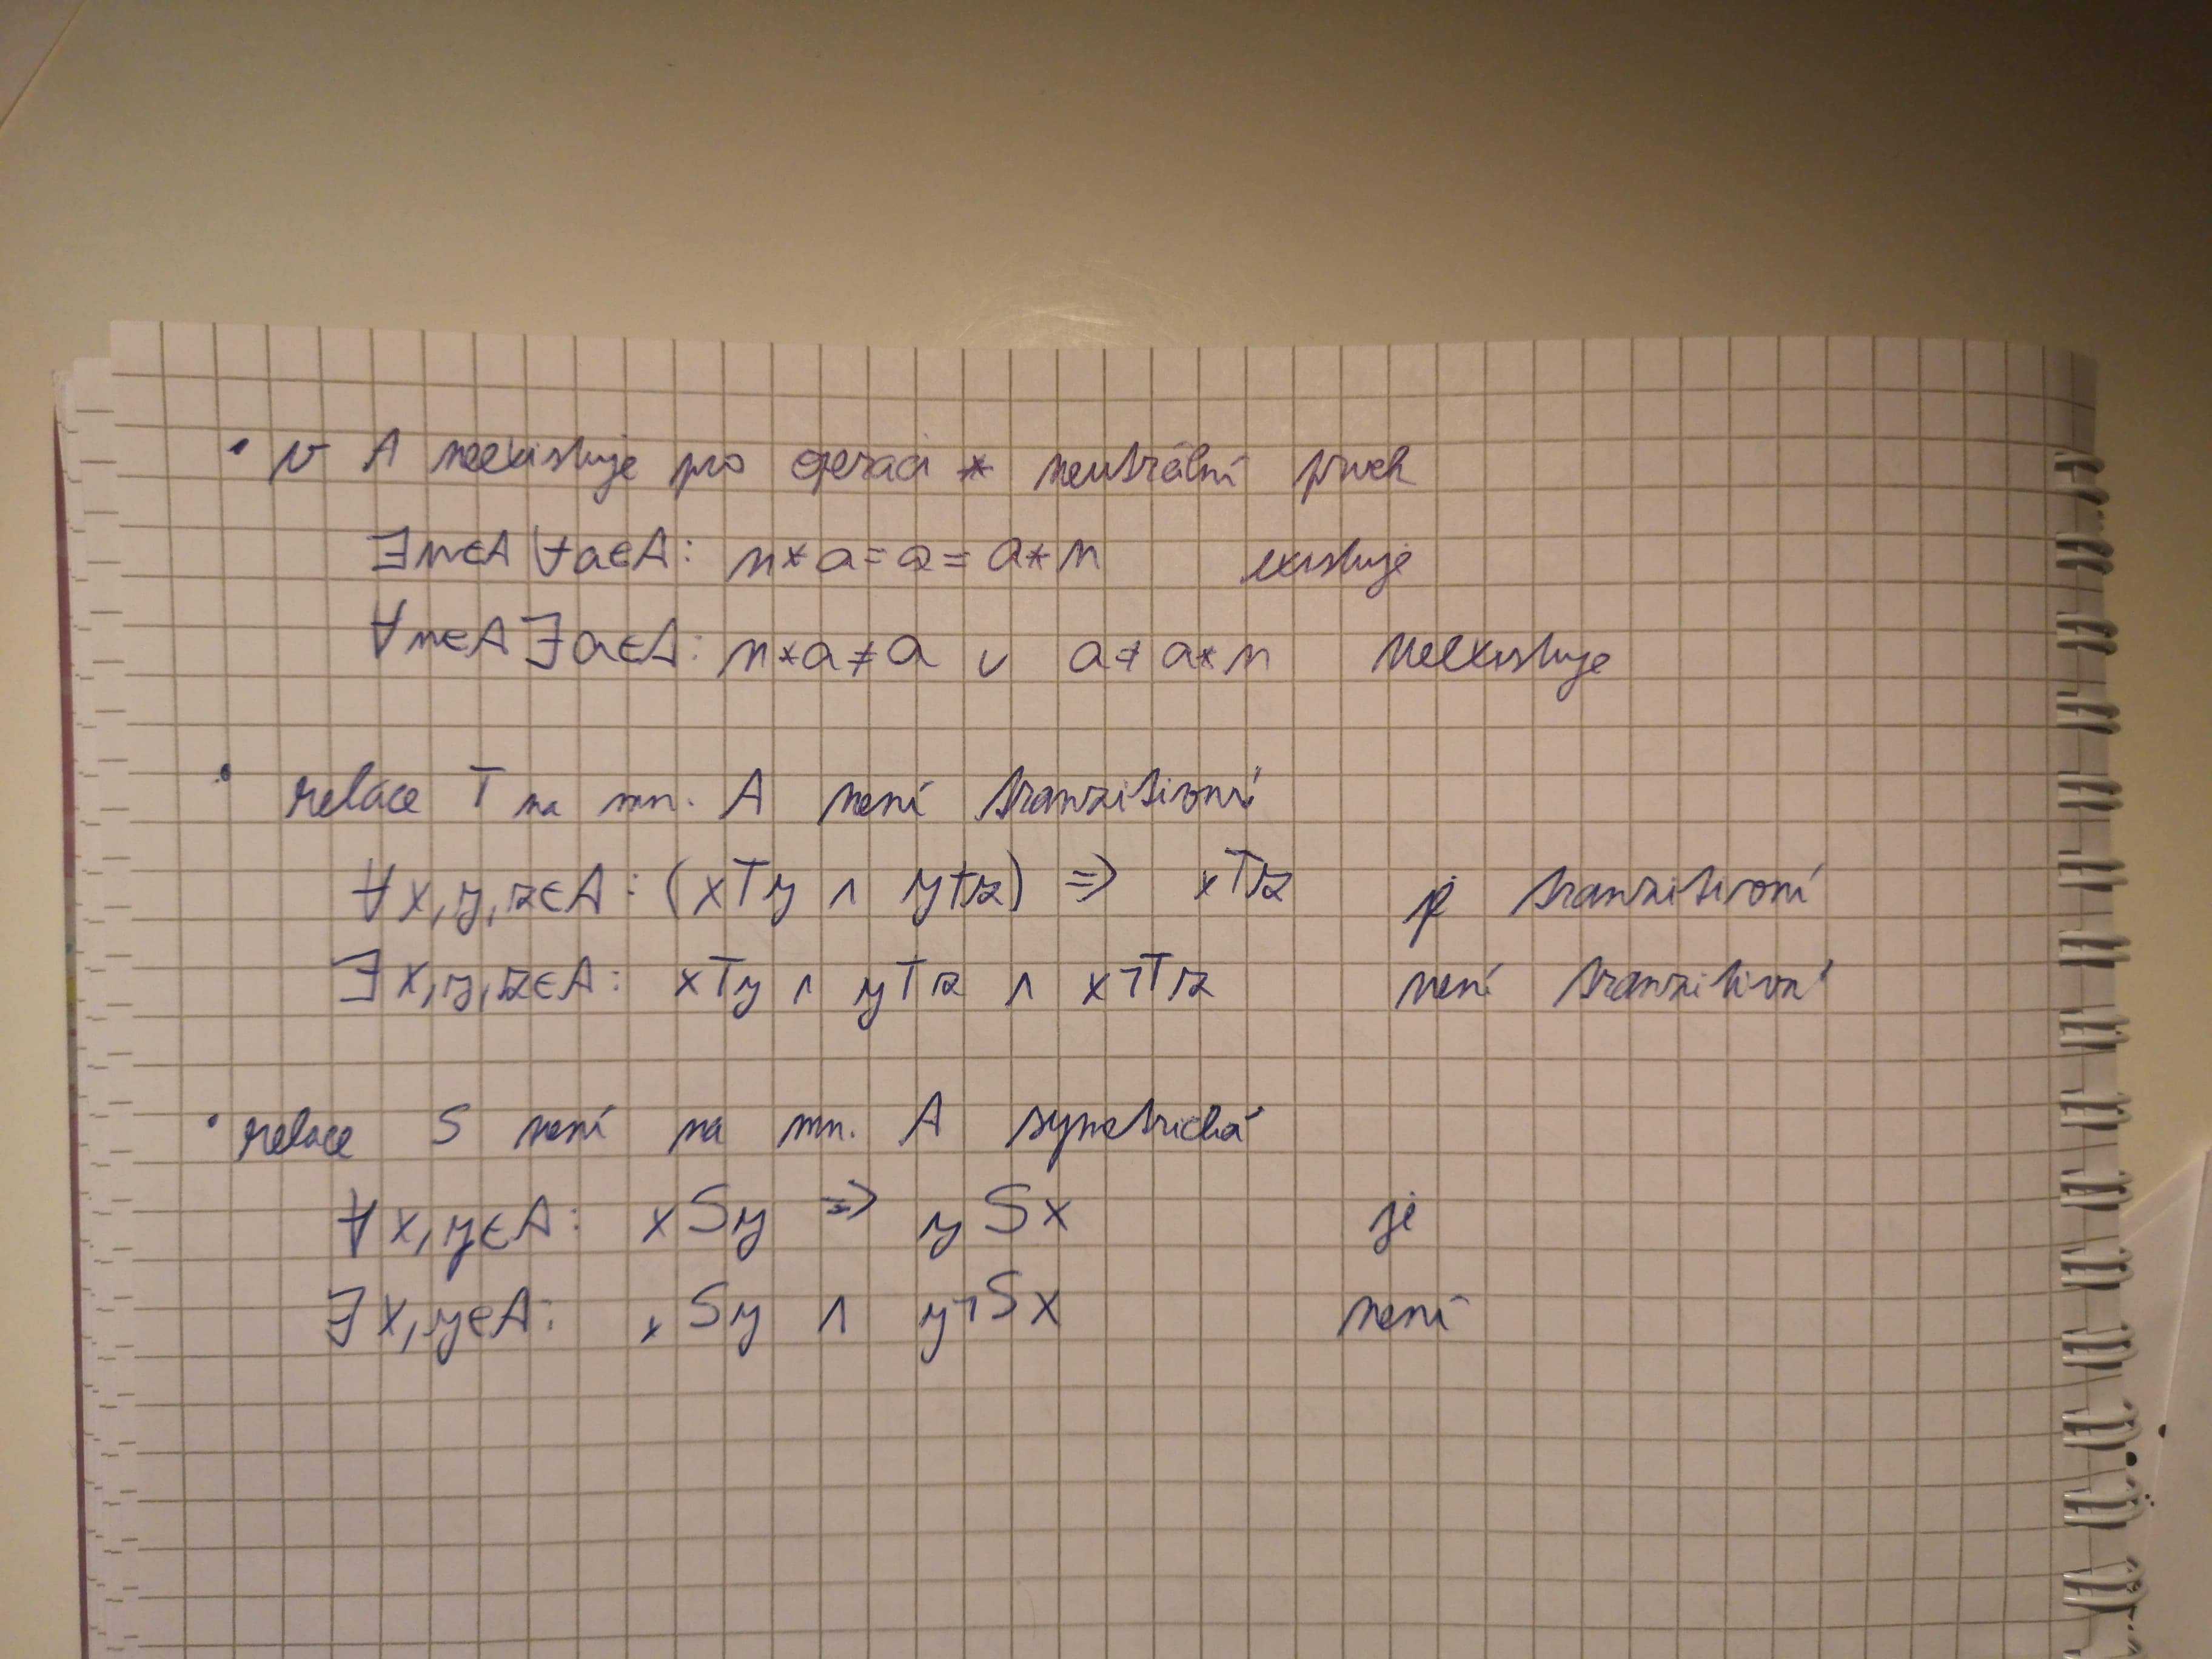 • v A neexistuje pro operaci * neutrální prvek
∃n∈A ∀a∈A: n*a=a=a*n existuje
∀n∈A ∃a∈A: n*a≠a ∨ a≠a*n neexistuje
• relace T na mn. A není tranzitivní
∀x,y,z∈A: (xTy ∧ yTz) => xTz je tranzitivní
∃x,y,z∈A: xTy ∧ yTz ∧ x¬Tz není tranzitivní
• relace S není na mn. A symetrická
∀x,y∈A: xSy => ySx je
∃x,y∈A: xSy ∧ y¬Sx není